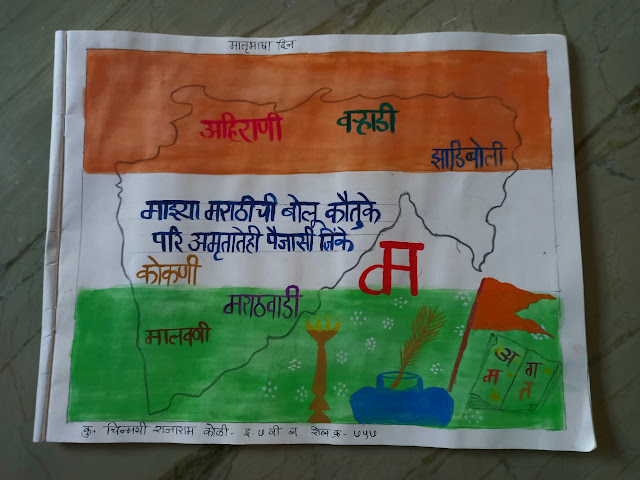 मातृभाषा दिन
अहिराणी
वऱ्हाडी
झाडिबोली
माझ्या मराठीची बोलू कौतुके
परि अमृतातेही पैजासी जिंके
कोकणी
म
मराठवाडी
मालवणी
अ
म
ग
त
कु. चिन्मयी राजाराम कोळी. इ. ७ वी ब